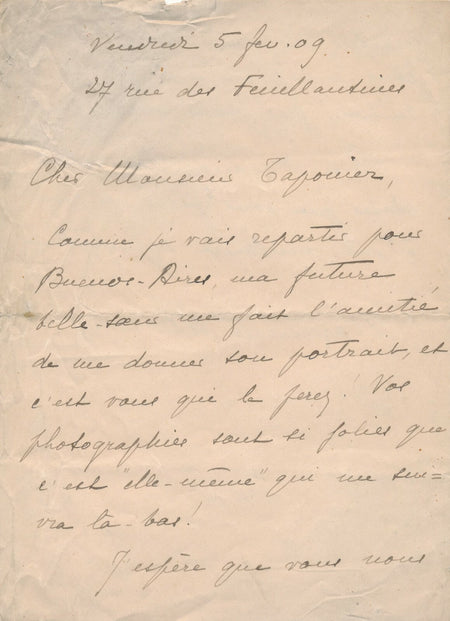 Vendredi 5 fev. 09
27 rue des Feuillantines
Cher Monsieur Taponier,
Comme je vais repartir pour
Buenos-Aires, ma future
belle-sœur me fait l'amitié
de me donner son portrait, et
c'est vous qui le ferez! Vos
photographies sont si jolies que
c'est "elle-même" qui me sui=
vra là-bas!
J'espère que vous nous